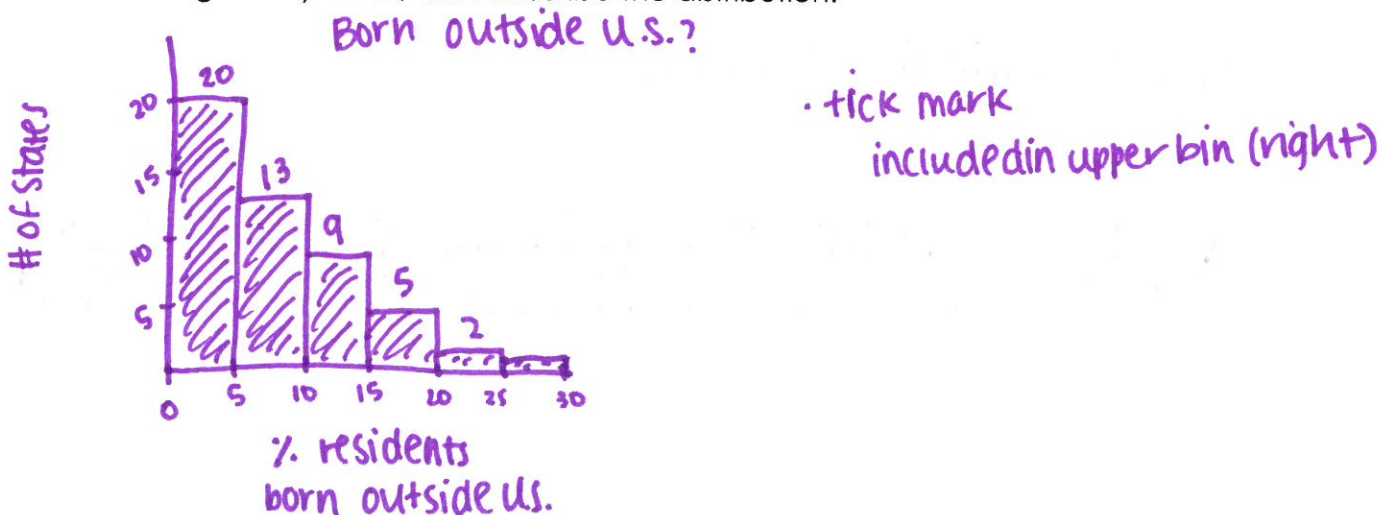 the distribution.
Born outside U.S.?
# of states
20
15
10
5
20
13
9
5
2
0 5 10 15 20 25 30
% residents
born outside US.
• tick mark
includedin upper bin (right)